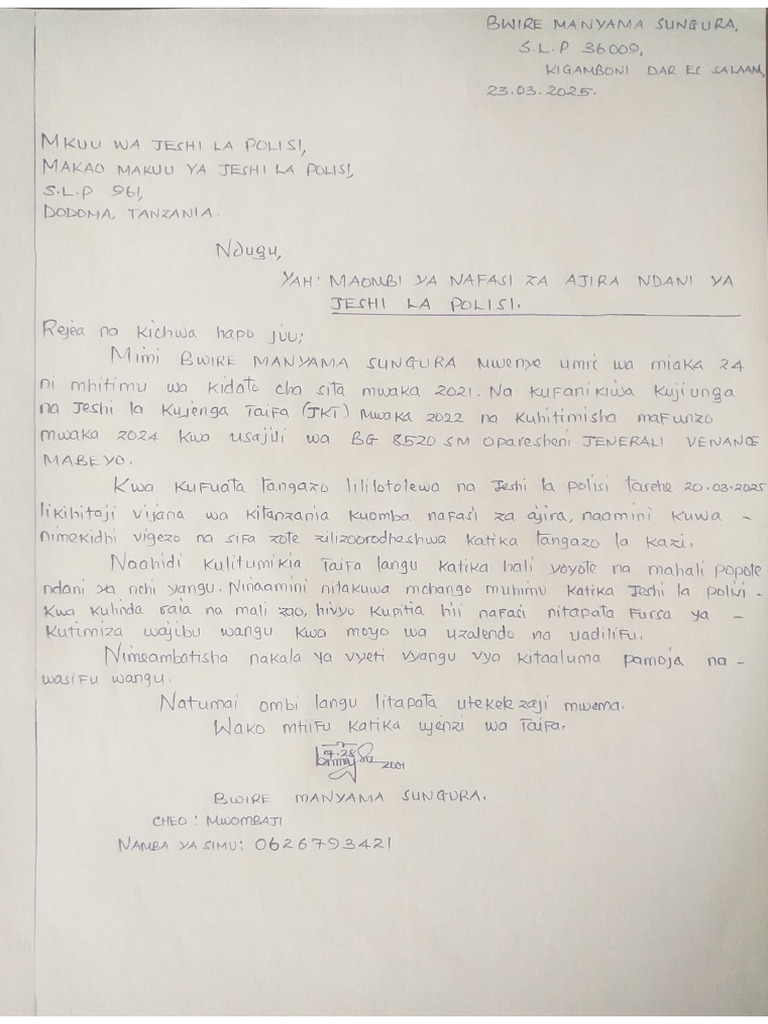 BWIRE MANYAMA SUNGURA,
S.L.P 36009,
KIGAMBONI DAR ES SALAAM,
23.03.2025.
MKUU WA JESHI LA POLISI,
MAKAO MAKUU YA JESHI LA POLISI,
S.L.P 961,
DODOMA, TANZANIA.
Ndugu,
YAH: MAOMBI YA NAFASI ZA AJIRA NDANI YA
JESHI LA POLISI.
Rejea na kichwa hapo juu;
Mimi BWIRE MANYAMA SUNGURA mwenye umri wa miaka 24
ni mhitimu wa kidato cha sita mwaka 2021. Na kufanikiwa kujiunga
na Jeshi la Kujenga Taifa (JKT) mwaka 2022 na kuhitimisha mafunzo
mwaka 2024 kwa usajili wa BG 8520 SM Oparesheni JENERALI VENANCE
MABEYO.
Kwa kufuata tangazo lililotolewa na Jeshi la polisi tarehe 20.03.2025
likihitaji vijana wa kitanzania kuomba nafasi za ajira, naamini kuwa -
nimekidhi vigezo na sifa zote zilizoorodheshwa katika tangazo la kazi.
Naahidi kulitumikia Taifa langu katika hali yoyote na mahali popote
ndani ya nchi yangu. Ninaamini nitakuwa mchango muhimu katika Jeshi la polisi -
kwa kulinda raia na mali zao, hivyo kupitia hii nafasi nitapata fursa ya -
kutimiza wajibu wangu kwa moyo wa uzalendo na uadilifu.
Nimeambatisha nakala ya vyeti vyangu vya kitaaluma pamoja na -
wasifu wangu.
Natumai ombi langu litapata utekelezaji mwema.
Wako mtiifu katika ujenzi wa Taifa.
2001
BWIRE MANYAMA SUNGURA.
CHEO: MWOMBAJI
NAMBA YA SIMU: 0626793421